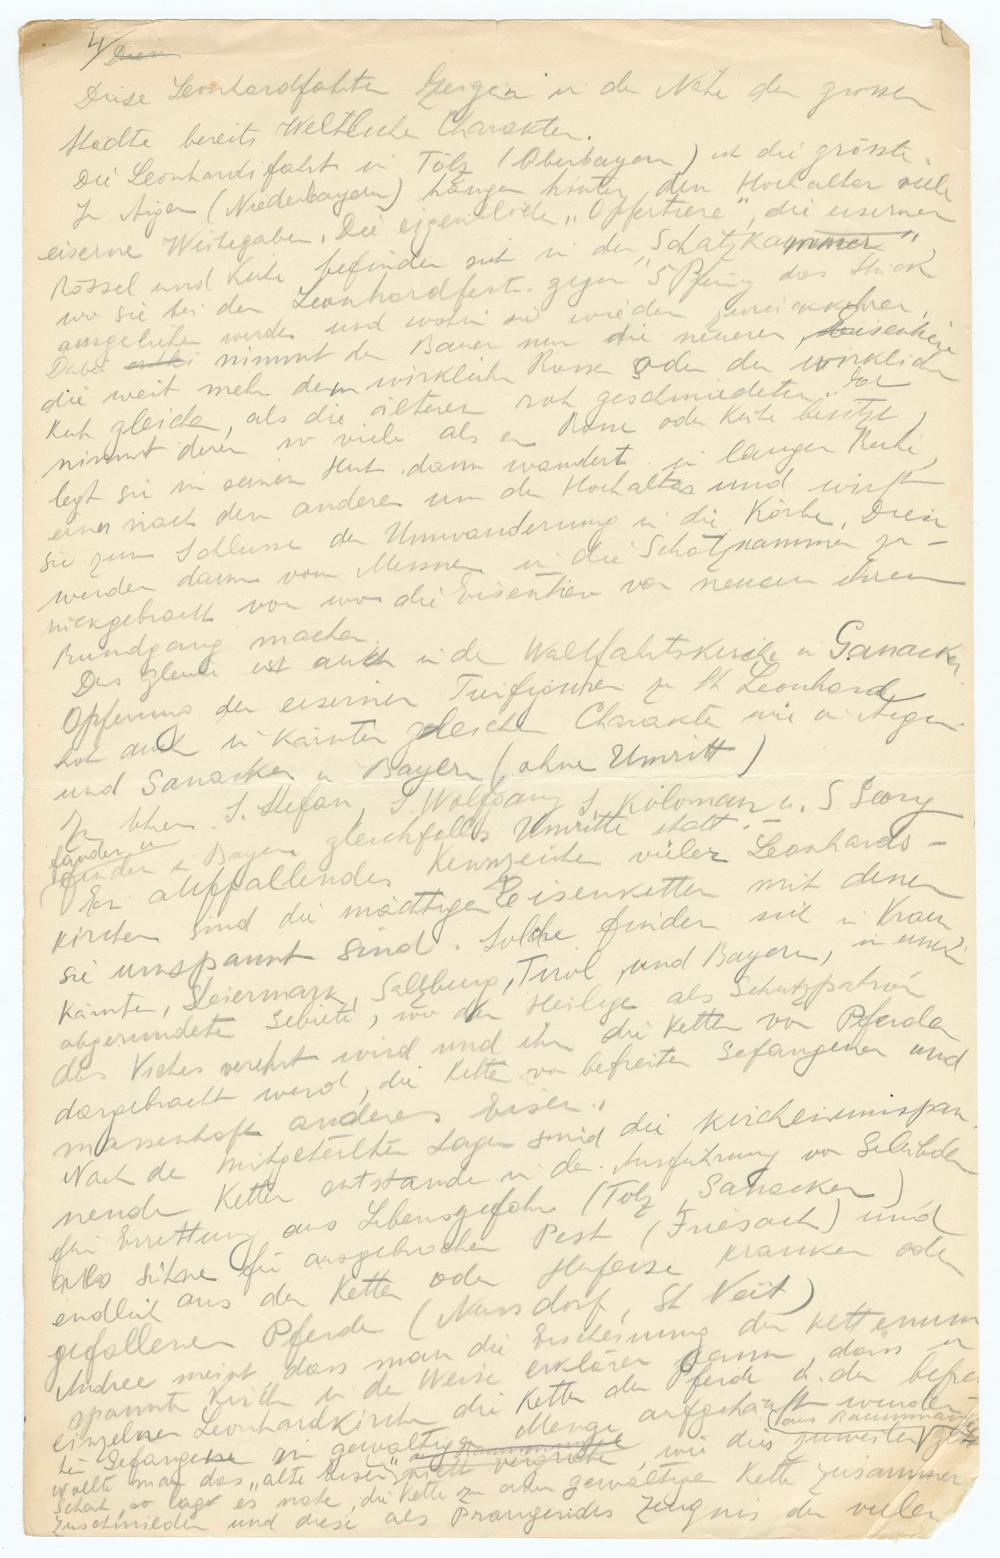 4/ Diese
Diese Leonhardfahrten zeigen in der Nähe der grossen
Städte bereits Weltliche Charakter.
Die Leonhardifahrt in Tölz (Oberbayern) ist die grösste.
In Aigen (Niederbayern) hängen hinter den Hochaltar viele
eiserne Weihegaben. Die eigentlichen „Opfertiere", die eisernen
Rössel und Kühe befinden sich in der „Schatzkammer",
wo sie bei den Leonhardfest gegen 5 Pfenig das Stück
ausgeliehen werden und wohin sie wieden zurückkehren,
Dabei nimmt der Bauer nur die neueren, Eisentiere
die weit mehr dem wirklichen Rosse oder der wirklichen
Kuh gleichen, als die älteren roh geschmiedeten. Er
nimmt deren so viele als er Rosse oder Kühe besitzt,
legt sie in seinen Hut dann wandert in langer Reihe,
einer nach den anderen um den Hochaltar und wirft
sie zum Schlusse der Umwanderung in die Körbe. Diese
werden dann vom Messner in die Schatzkammer zu-
rückgebracht von wo die Eisentiere von neuem ihren
Rundgang machen.
Das gleiche ist auch in der Wallfahrtskirche in Ganacker.
Opferung der eisernen Tierfiguren zu St Leonhard
hat auch in Kärnten gleichen Charakter wie in Aigen
und Ganacker in Bayern (ohne Umritt)
In Ehren S. Stefan, S. Wolfgang S. Koloman u. S Georg
fanden in
finden in Bayern gleichfalls Umritte statt.-
Ein auffallendes Kennzeichen vieler Leonhards-
kirchen sind die mächtigen Eisenketten mit denen
sie umspannt sind. Solche finden sich in Krain
Kärnten, Steiermark, Salzburg, Tirol und Bayern, in einen
abgerundeten Gebiete, wo der Heilige als Schutzpatron
des Viehes verehrt wird und ihm die Ketten von Pferden
dargebracht werd, die Ketten von befreiten Gefangenen und
massenhaft anderes Eisen."
Nach den mitgeteilten Sagen sind die kirchenumspan
nenden Ketten entstanden in der Ausführung von Gelübden
für Errettung aus Lebensgefahr (Tölz, Ganacker),
als Sühne für ausgebrochen Pest (Friesach) und
endlich aus den Ketten oder Hufeise kranken oder
gefallenen Pferde (Nussdorf, St Veit)
Andree meint, dass man die Erscheinung der kettenum
spannten Kirchen in der Weise erklären kann, dass in
einzelnen Leonhardkirchen die Ketten der Pferde u. der befrei
ten Gefangenen in gewaltiger Menge aufgehäuft wurden
(aus Raummangel
Wollte man das „alte Eisen" nicht vergraben, wie dies zuweilen
Schah, so lag es nahe, die Kette zu einer gewaltigen Kette zusammen
zuschmieden und diese als Prangendes Zeugnis der vielen